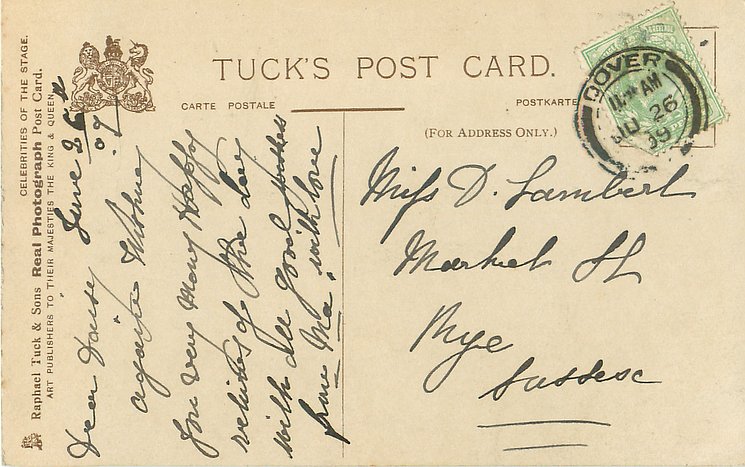 CELEBRITIES OF THE STAGE.
Raphael Tuck & Sons Real Photograph Post Card.
ART PUBLISHERS TO THEIR MAJESTIES THE KING & QUEEN
TUCK'S POST CARD.
CARTE POSTALE
POSTKARTE
(FOR ADDRESS ONLY.)
DOVER
AM
JU 26
09
June 26th
09
Dear Daisy
again wishing
you very many Happy
returns of the day
with all good wishes
from Ma, with love
Miss D. Lambert
Market St
Rye
Sussex